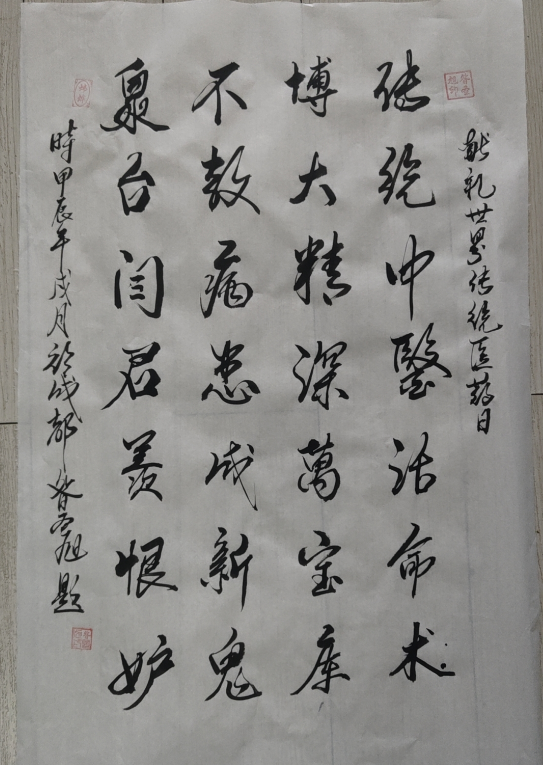 献礼世界传统医药日
传统中醫活命术
博大精深萬宝库
不教病患成新鬼
泉台闫君羡恨妒
時甲辰年戌月於成都
題